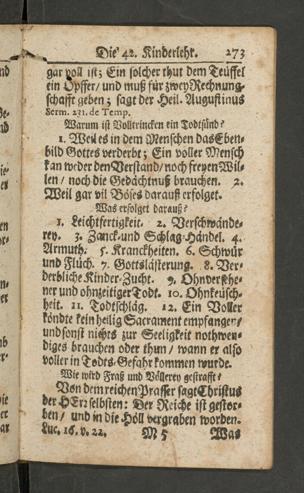 Die 42. Kinderlehr. 273
gar voll ist; Ein solcher thut dem Teüffel
ein Opffer/ und muß für zwey Rechnung-
schafft geben; sagt der Heil. Augustinus
Serm. 231. de Temp.
Warum ist Volltrincken ein Todtsünd?
1. Weil es in dem Menschen das Eben-
bild Gottes verderbt; Ein voller Mensch
kan weder den Verstand/ noch freyen Wil-
len/ noch die Gedächtnuß brauchen. 2.
Weil gar vil Böses darauß erfolget.
Was erfolget darauß?
1. Leichtfertigkeit. 2. Verschwände-
rey. 3. Zanck- und Schlag-Händel. 4.
Armuth. 5. Kranckheiten. 6. Schwür
und Flüch. 7. Gottslästerung. 8. Ver-
derbliche Kinder-Zucht. 9. Ohnversehe-
ner und ohnzeitiger Todt. 10. Ohnkeüsch-
heit. 11. Todtschläg. 12. Ein Voller
köndte kein heilig Sacrament empfangen/
und sonst nichts zur Seeligkeit nothwen-
diges brauchen oder thun/ wann er also
voller in Todts-Gefahr kommen wurde.
Wie wird Fraß und Völlerey gestrafft?
Von dem reichen Prasser sagt Christus
der HErr selbsten: Der Reiche ist gestor-
ben/ und in die Höll vergraben worden.
Luc. 16. v. 22. M 5 Was